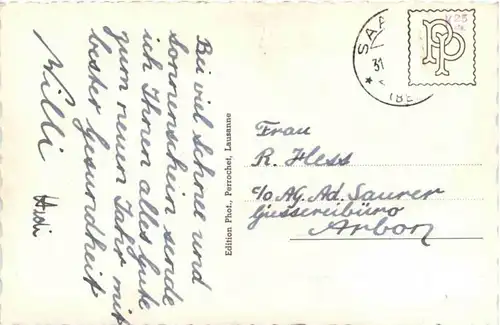 Bei viel Schnee und
Sonnenschein sende
ich Ihnen alles Gute
zum neuen Jahr mit
bester Gesundheit
Willi
Hedi
Edition Phot. Perrochet, Lausanne
SAA
31
(BE
PP
Frau
R. Hess
c/o AG. Ad. Saurer
Giessereibüro
Arbon